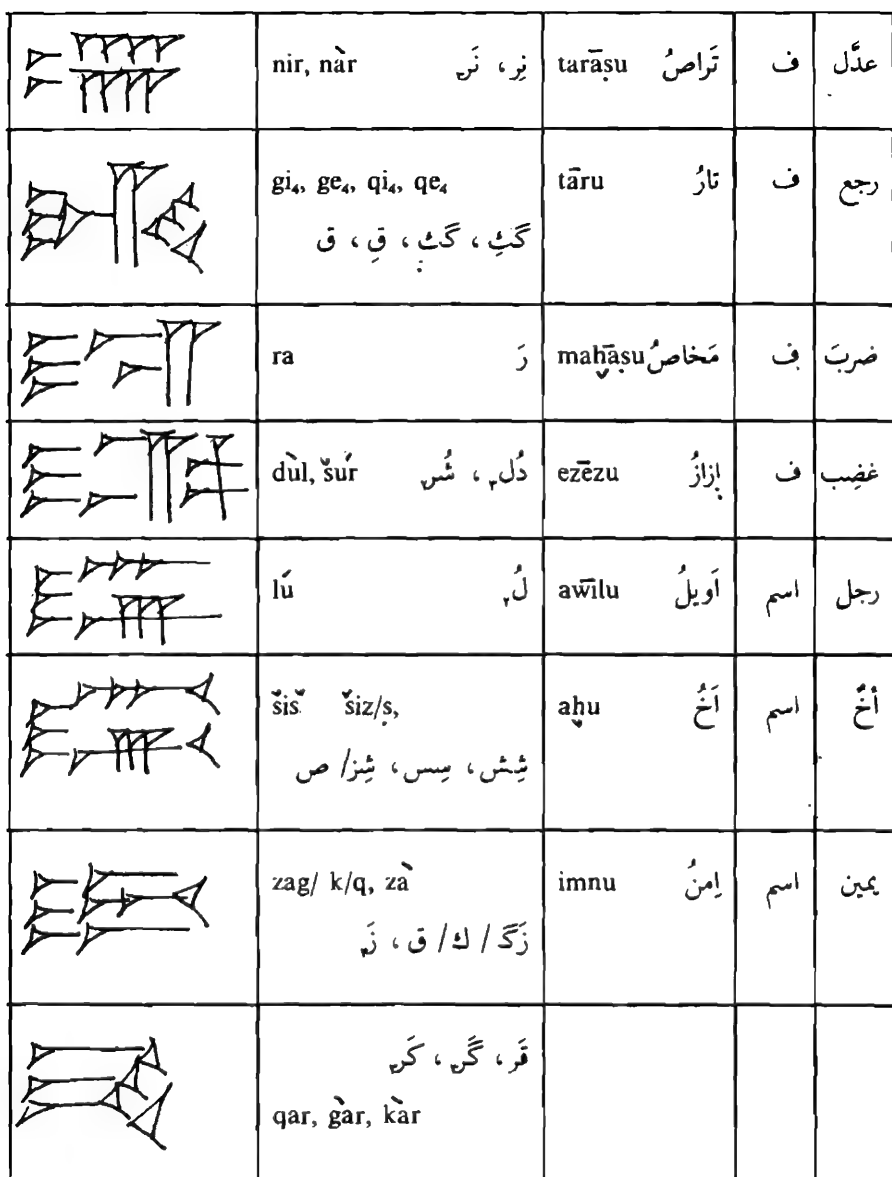 nir, nàr نِر، نَر tarāṣu تَراصُ ف عدَّل
gi₄, ge₄, qi₄, qe₄ tāru تارُ ف رجع
گِ، گ، قِ، ق
ra رَ maḫāṣu مَخاصُ ف ضربَ
dùl, šúr دُل، شُر ezēzu إزازُ ف غضِب
lú لُ awīlu اَويلُ اسم رجل
šiš šiz/ṣ, aḫu اَخُ اسم أخٌ
شِش، سِس، شِز/ ص
zag/ k/q, zà imnu اِمنُ اسم يمين
زَگ / ك/ ق، زَ
قَر، گَر، كَر
qar, gàr, kàr